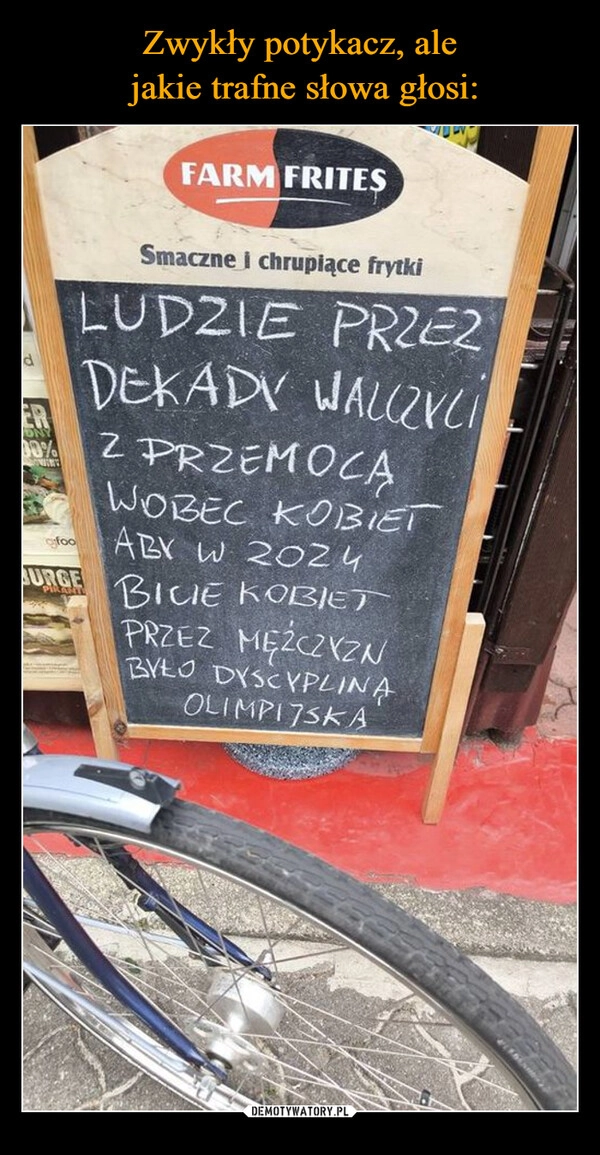 Zwykły potykacz, ale
jakie trafne słowa głosi:
FARM FRITES
Smaczne i chrupiące frytki
LUDZIE PRZEZ
DEKADY WALCZYLI
Z PRZEMOCĄ
WOBEC KOBIET
ABY W 2024
BICIE KOBIET
PRZEZ MĘŻCZYZN
BYŁO DYSCYPLINĄ
OLIMPIJSKĄ
DEMOTYWATORY.PL